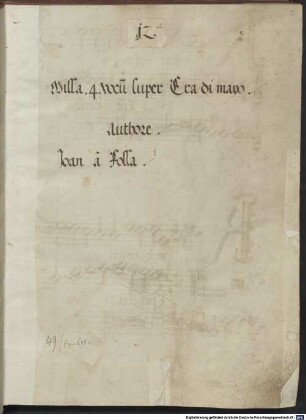 12.
Missa. 4. Vocū super Era di mayo.
Authore.
Ioan â Fossa.
49/
Digitalisierung gefördert durch die Deutsche Forschungsgemeinschaft